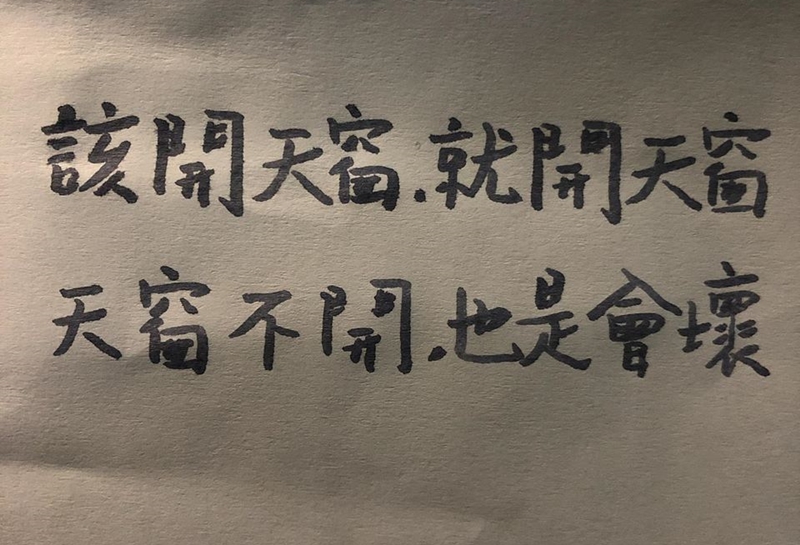 該開天窗.就開天窗
天窗不開.也是會壞